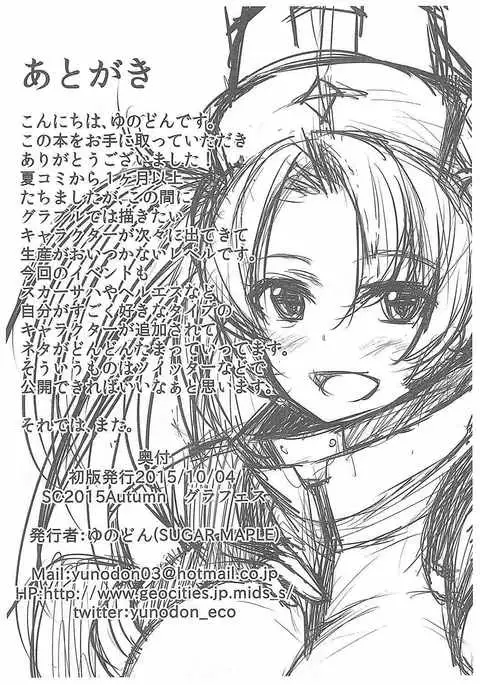 あとがき
こんにちは、ゆのどんです。
この本をお手に取っていただき
ありがとうございました!
夏コミから1ヶ月以上
たちましたが、この間に
グラブルでは描きたい
キャラクターが次々に出てきて
生産がおいつかないレベルです。
今回のイベントも
スカーサハやヘルエスなど
自分がすごく好きなタイプの
キャラクターが追加されて
ネタがどんどんたまっていってます。
そういうものはツイッターなどで
公開できればいいなぁと思います。
それでは、また。
奥付
初版発行2015/10/04
SC2015Autumn グラフェス
発行者:ゆのどん(SUGAR MAPLE)
Mail:yunodon03@hotmail.co.jp
HP:http://www.geocities.jp.mids_s/
twitter:yunodon_eco